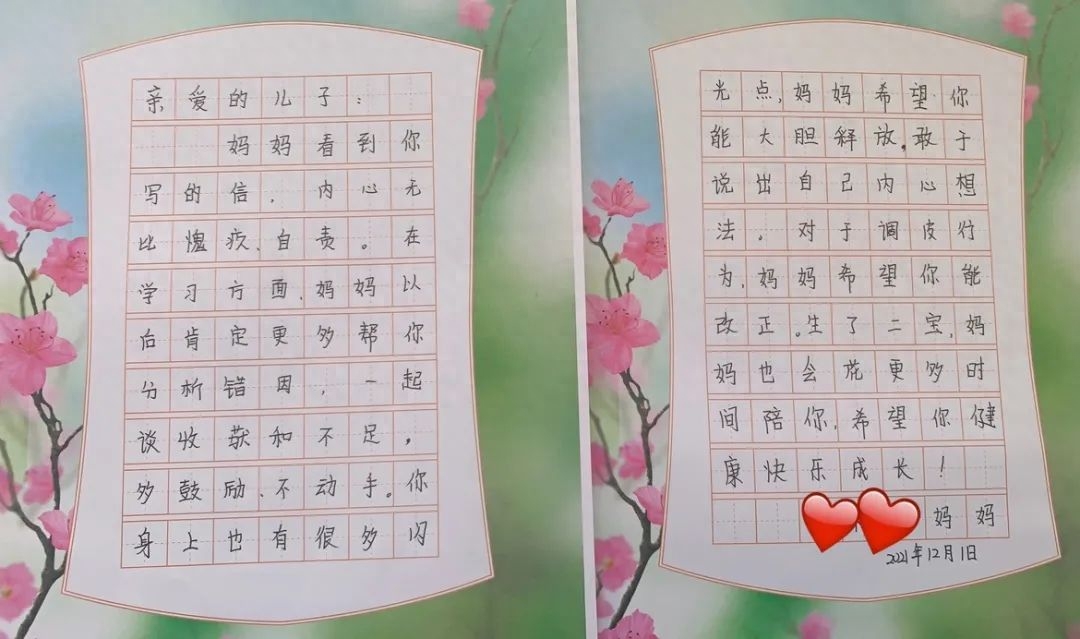 亲爱的儿子：
妈妈看到你
写的信，内心无
比愧疚、自责。在
学习方面，妈妈以
后肯定更多帮你
分析错因，一起
谈收获和不足，
多鼓励、不动手。你
身上也有很多闪
光点，妈妈希望你
能大胆释放，敢于
说出自己内心想
法。对于调皮行
为，妈妈希望你能
改正。生了二宝，妈
妈也会花更多时
间陪你，希望你健
康快乐成长！
妈妈
2021年12月1日